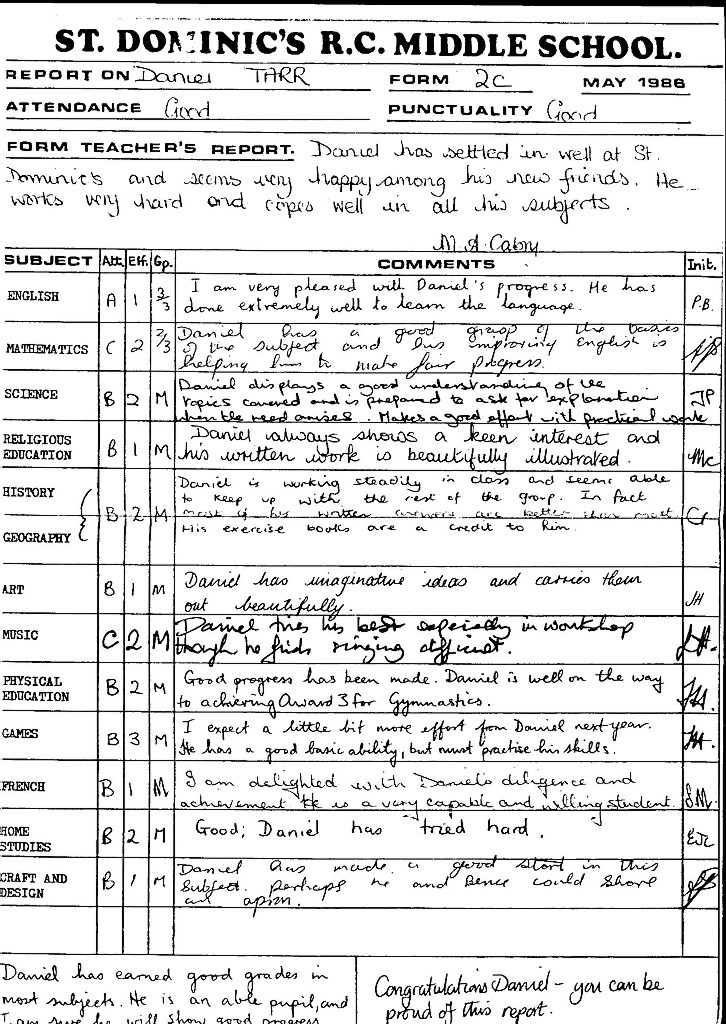 ST. DOMINIC'S R.C. MIDDLE SCHOOL.
REPORT ON Daniel TARR FORM 2C MAY 1986
ATTENDANCE Good PUNCTUALITY Good
FORM TEACHER'S REPORT. Daniel has settled in well at St.
Dominic's and seems very happy among his new friends. He
works very hard and copes well in all his subjects.
M.A. Cabry
SUBJECT Att. Eff. Gp. COMMENTS Init.
ENGLISH A 1 3/3 I am very pleased with Daniel's progress. He has
done extremely well to learn the language. P.B.
MATHEMATICS C 2 2/3 Daniel has a good grasp of the basics
of the subject and his improving English is
helping him to make fair progress.
SCIENCE B 2 M Daniel displays a good understanding of the
topics covered and is prepared to ask for explanation
when the need arises. Makes a good effort with practical work JP
RELIGIOUS
EDUCATION B 1 M Daniel always shows a keen interest and
his written work is beautifully illustrated. Mc
HISTORY
GEOGRAPHY B 2 M Daniel is working steadily in class and seems able
to keep up with the rest of the group. In fact
most of his written answers are better than most
His exercise books are a credit to him.
ART B 1 M Daniel has imaginative ideas and carries them
out beautifully. JH
MUSIC C 2 M Daniel tries his best especially in workshop
though he finds singing difficult.
PHYSICAL
EDUCATION B 2 M Good progress has been made. Daniel is well on the way
to achieving Award 3 for Gymnastics.
GAMES B 3 M I expect a little bit more effort from Daniel next year.
He has a good basic ability, but must practise his skills.
FRENCH B 1 M I am delighted with Daniel's diligence and
achievement He is a very capable and willing student. SM.
HOME
STUDIES B 2 M Good; Daniel has tried hard.
CRAFT AND
DESIGN B 1 M Daniel has made a good start in this
subject. Perhaps he and Bence could share
an apron.
Daniel has earned good grades in
most subjects. He is an able pupil, and
I am sure he will show good progress
Congratulations Daniel - you can be
proud of this report.